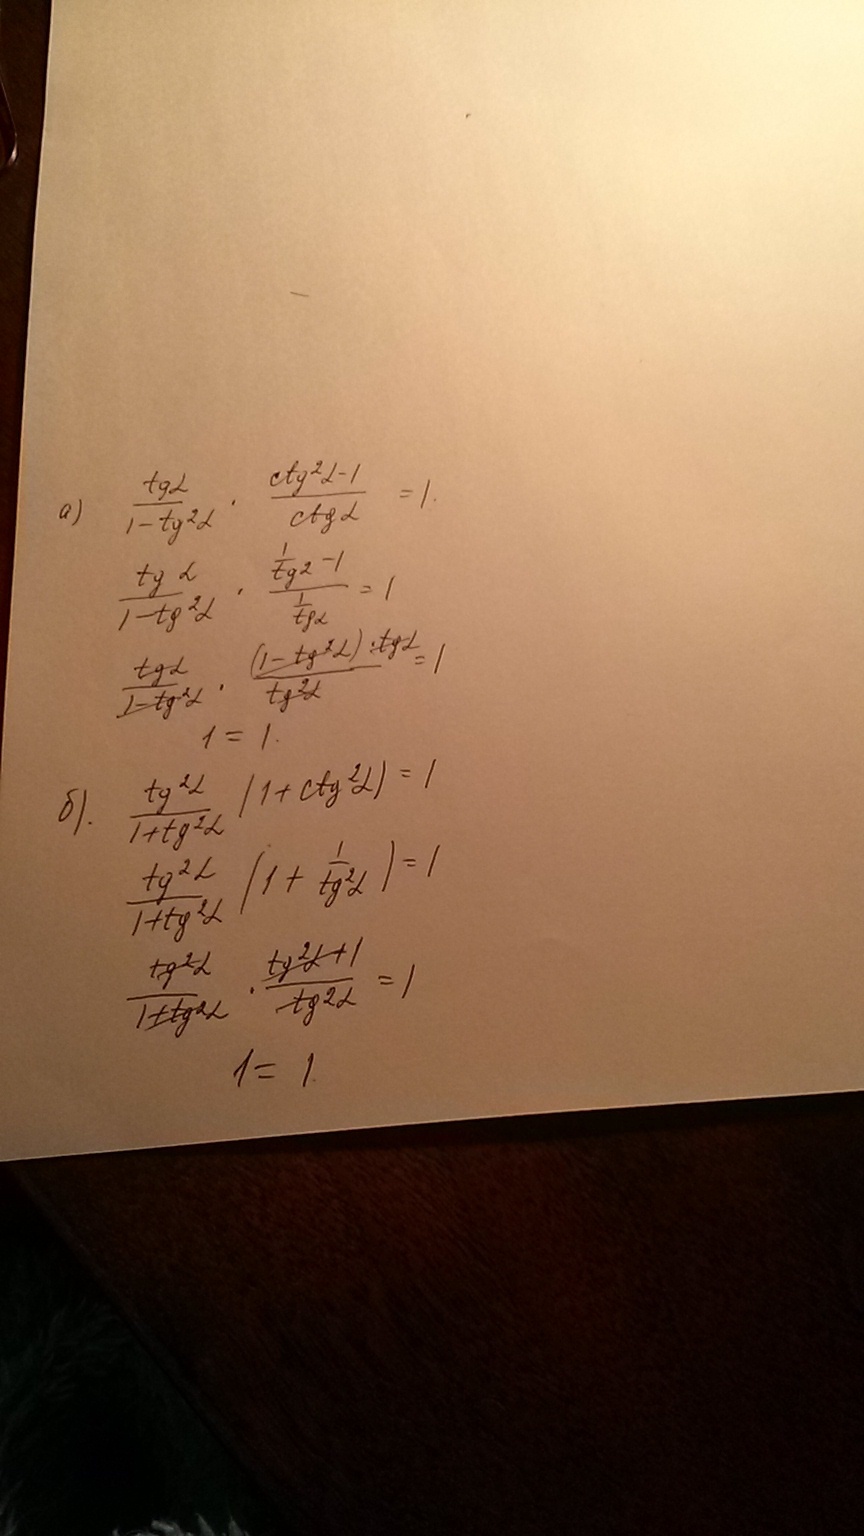 а) tgα/(1-tg²α) · (ctg²α-1)/ctgα = 1.
tgα/(1-tg²α) · (1/tg2-1)/(1/tgα) = 1
tgα/(1-tg²α) · ((1-tg²α)·tgα)/tg²α = 1
1 = 1.
б). tg²α/(1+tg²α) (1+ctg²α) = 1
tg²α/(1+tg²α) (1+1/tg²α) = 1
tg²α/(1+tg²α) · (tg²α+1)/tg2α = 1
1 = 1.